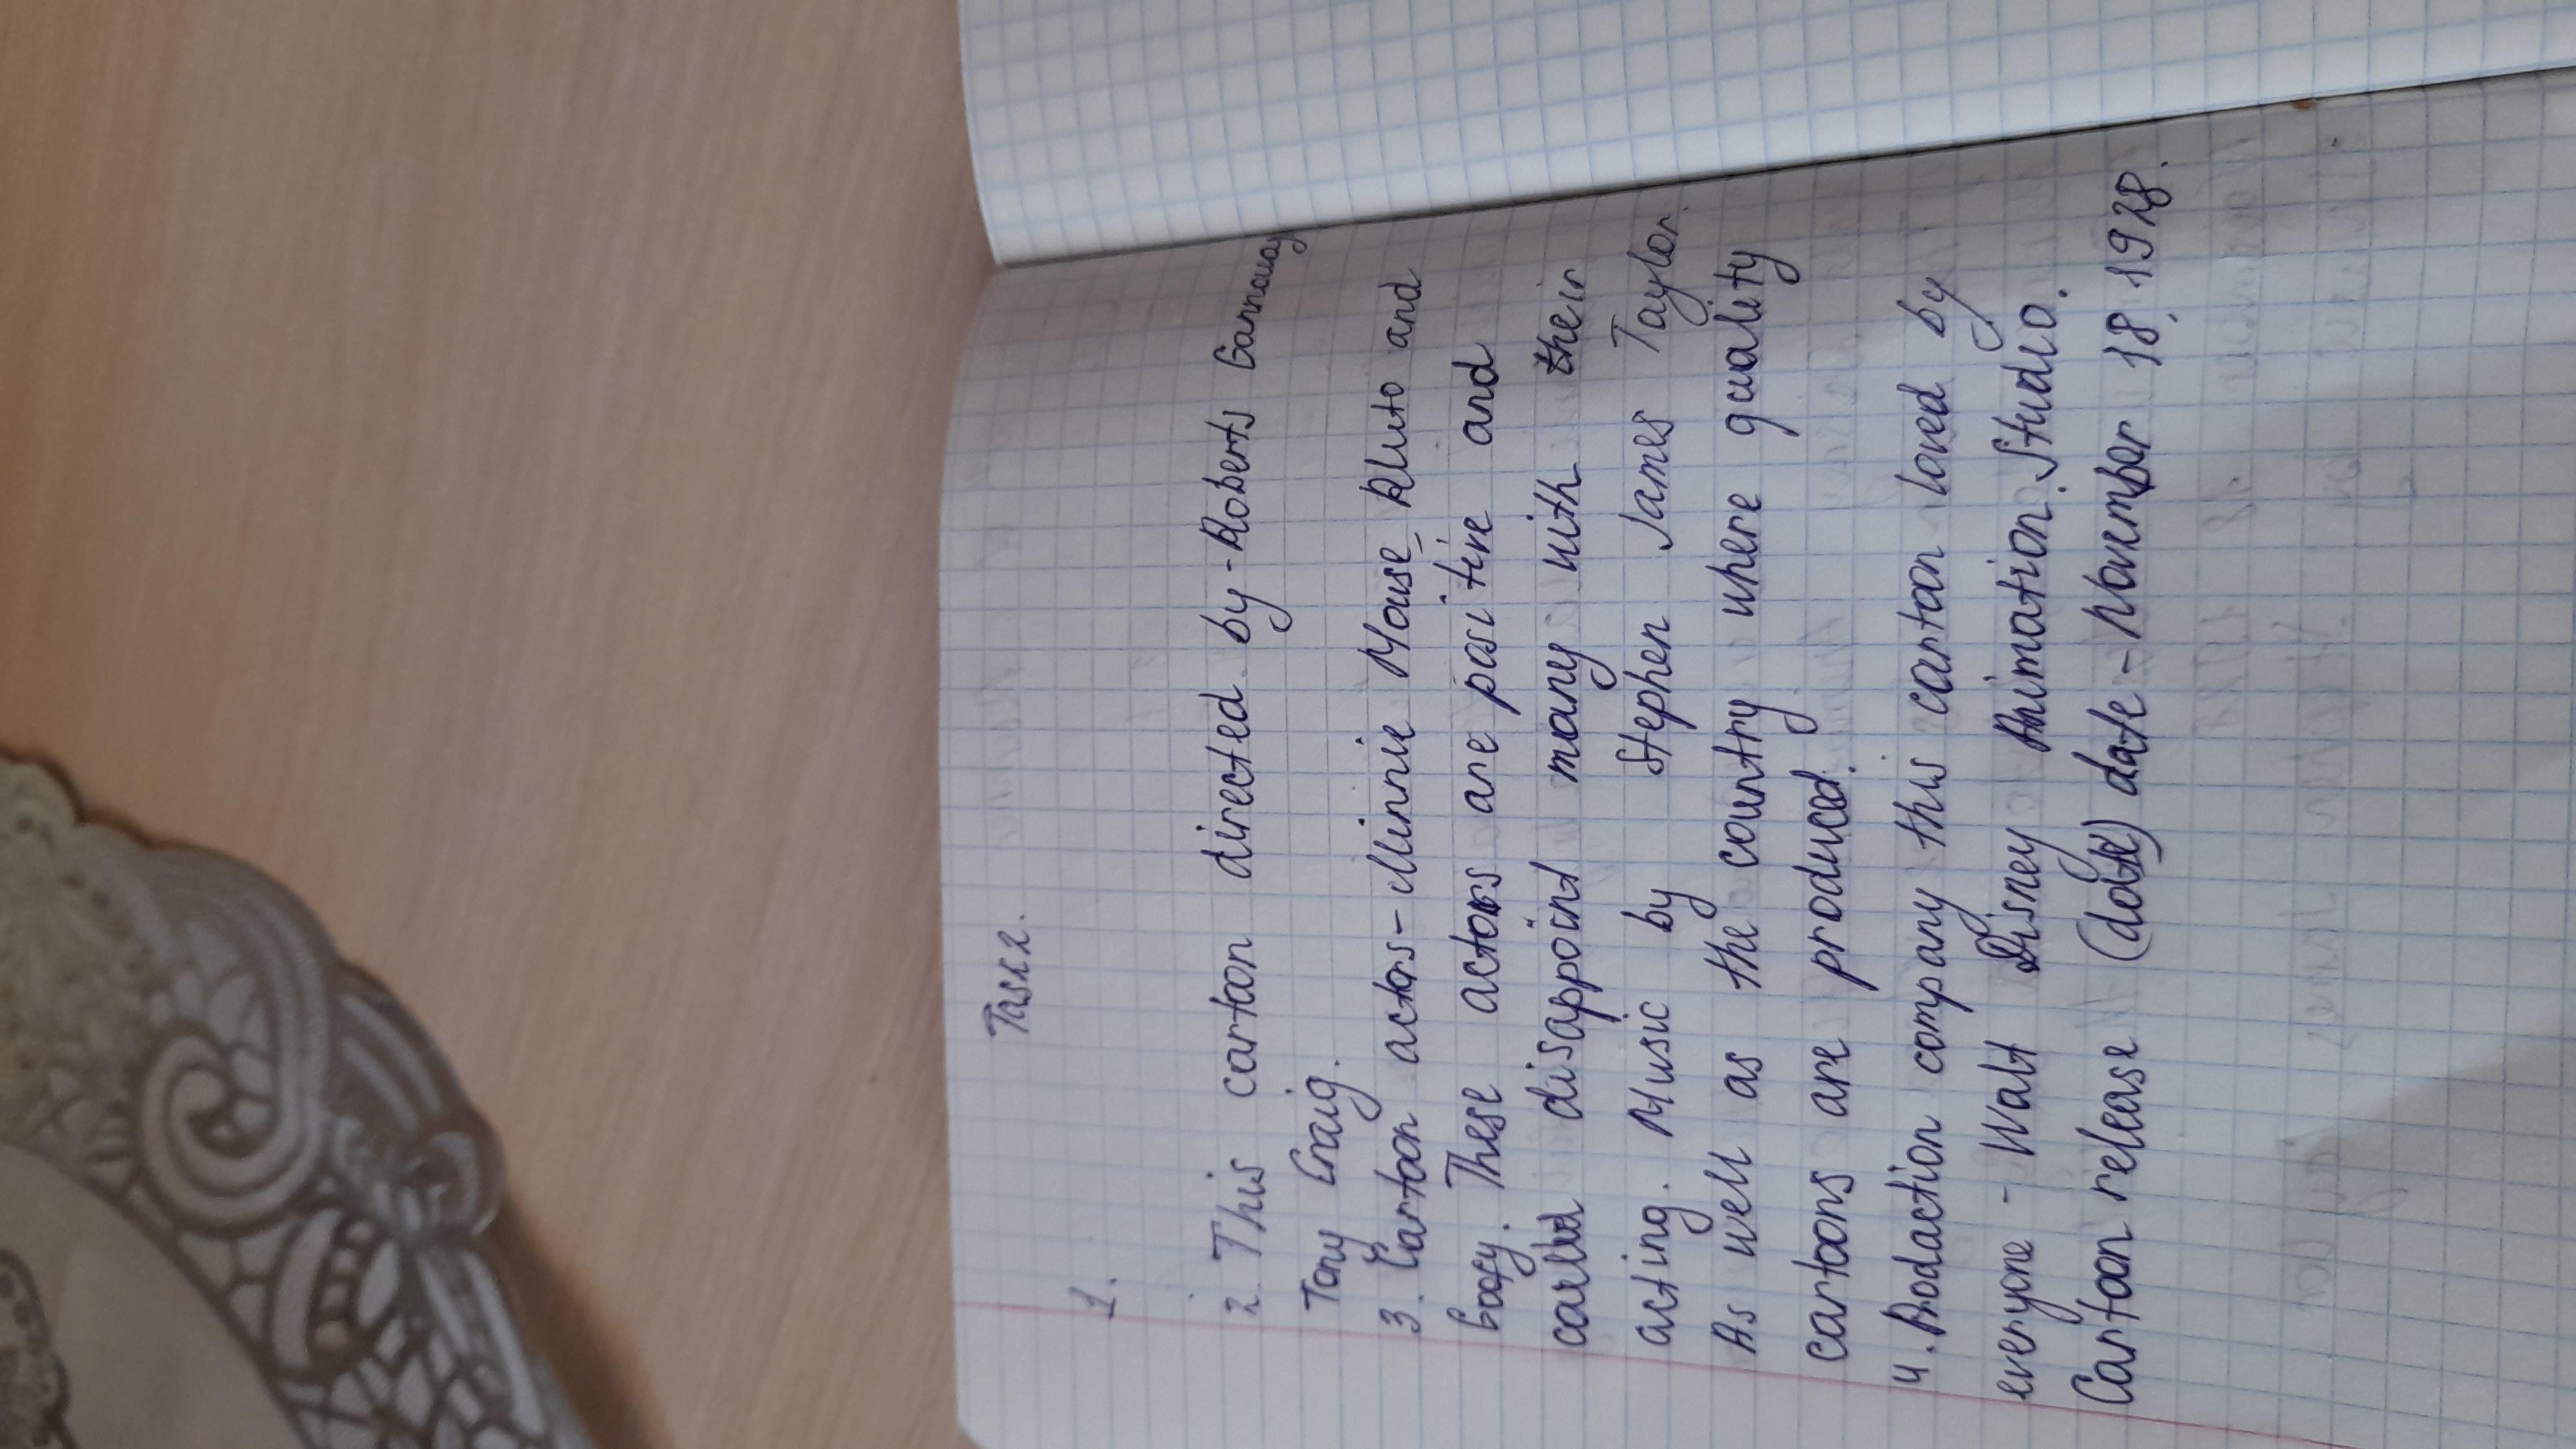 Task 2.
1.
2. This cartoon directed by - Roberts Gannaway
Tony Craig.
3. Cartoon actors - Minnie Mouse, Pluto and
Goofy. These actors are positive and
disappoind many with their
acting. Music by Stephen James Taylor.
As well as the country where quality
cartoons are produced.
4. Prodaction company this cartoon loved by
everyone - Walt Disney Animation Studio.
Cartoon release (date) date - November 18, 1928.